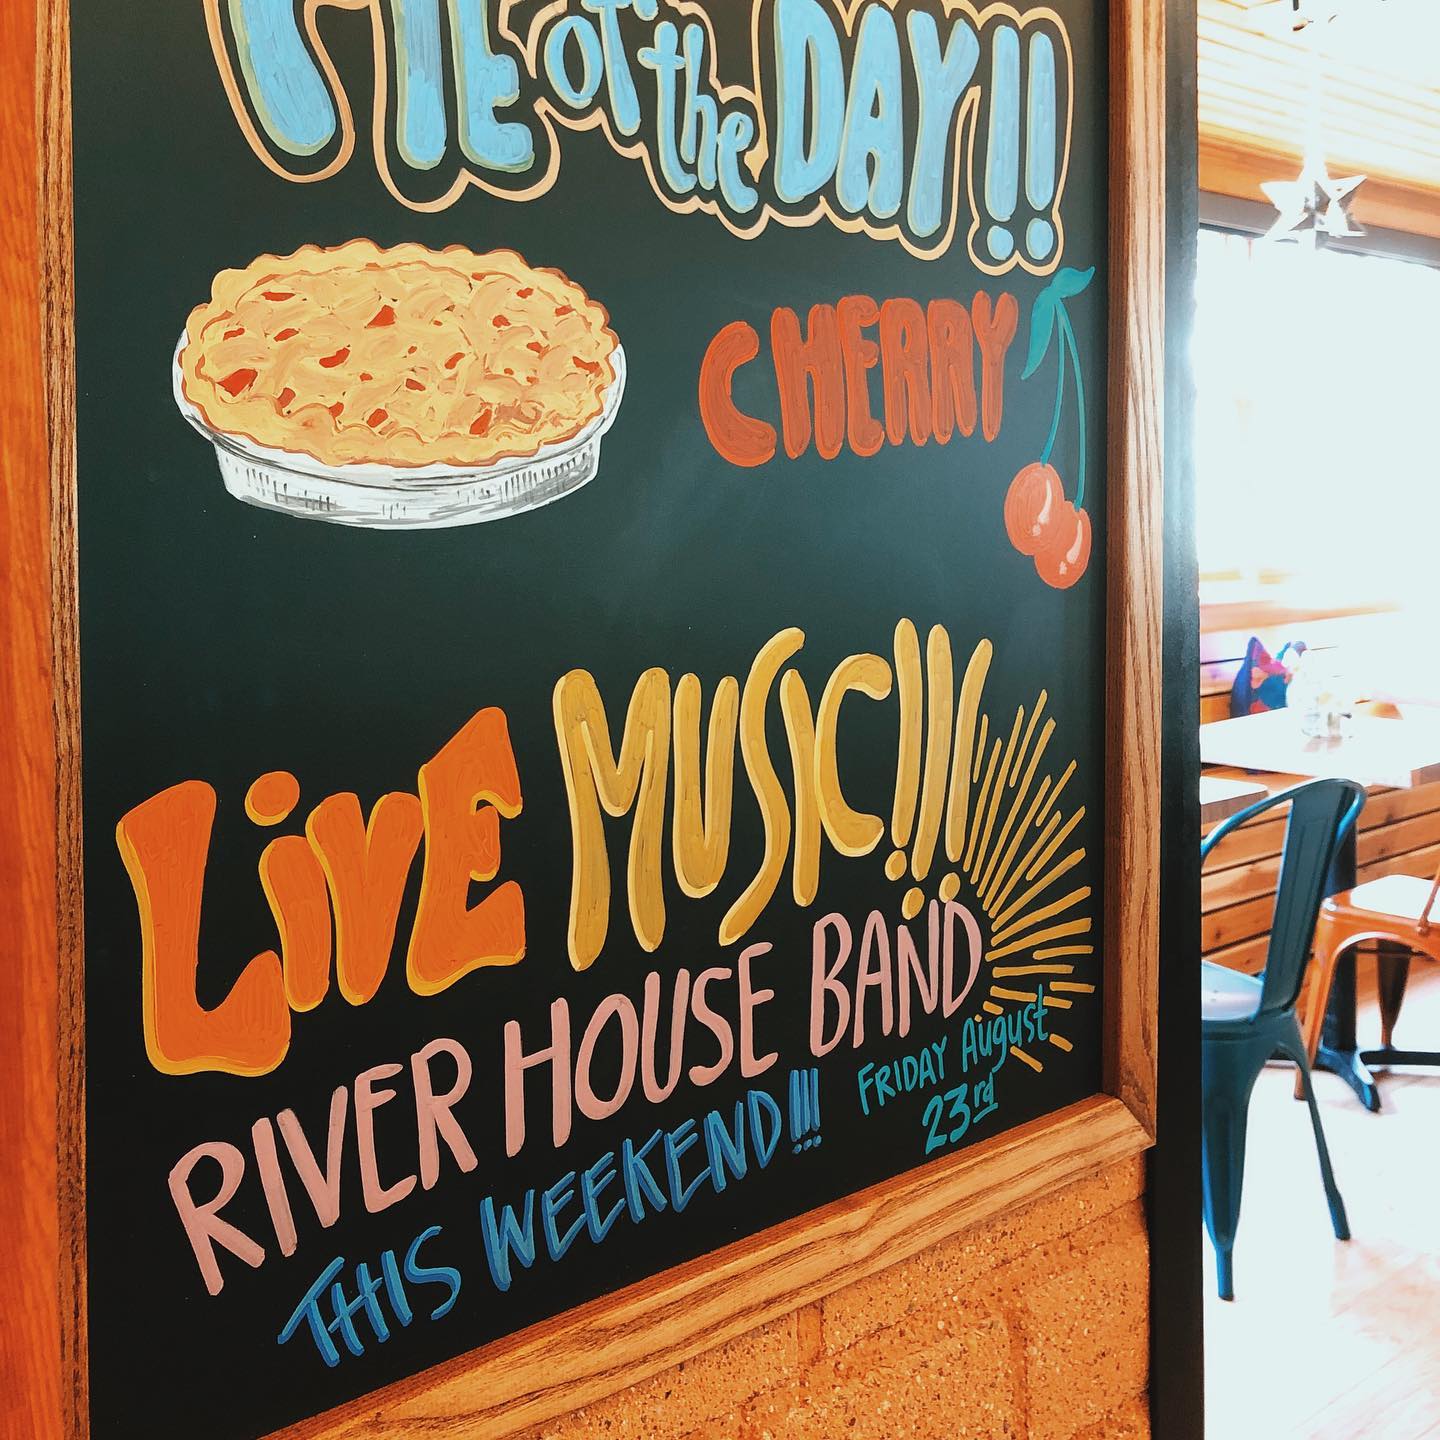 PIE of the DAY!!
CHERRY
LiVE MUSIC!!!
RIVER HOUSE BAND
THIS WEEKEND!!!
FRIDAY August
23rd